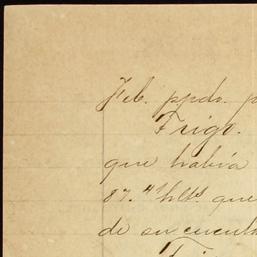 Feb. ppdo. p
Trigo.
que habia
87.41 hlts. que
de su cuenta